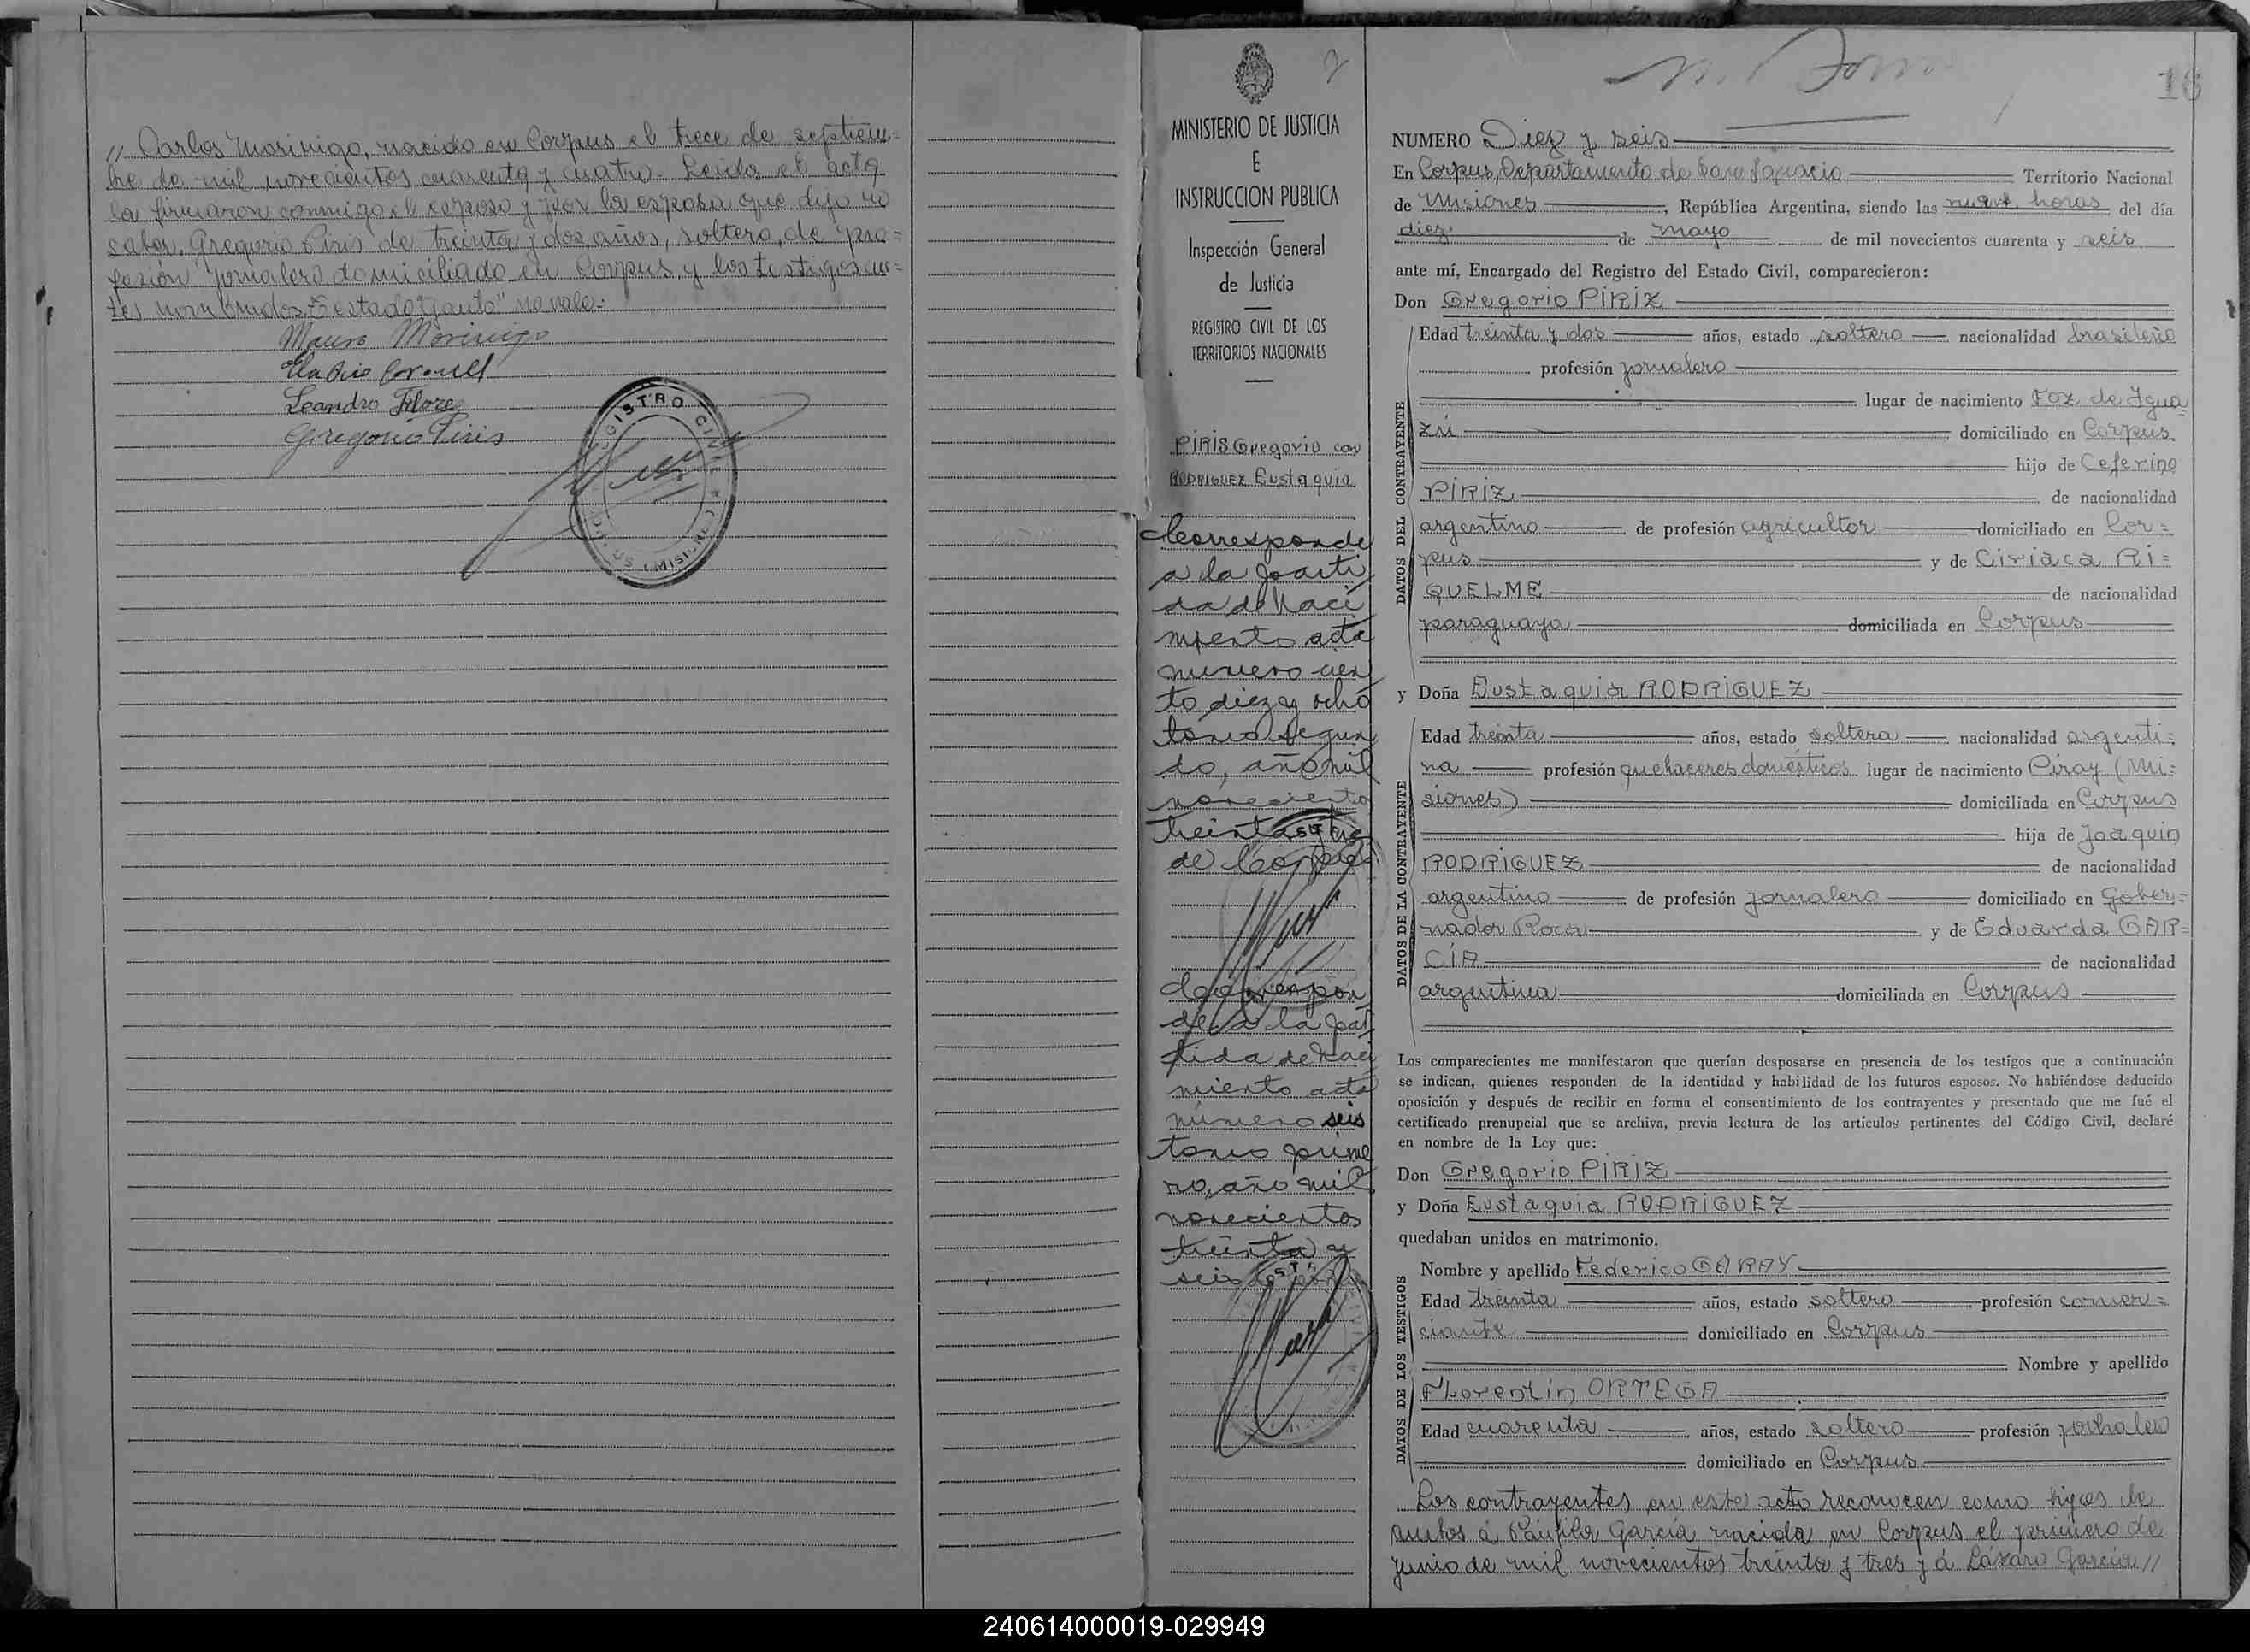 // Carlos Morinigo, nacido en Corpus el trece de septiem=
bre de mil novecientos cuarenta y cuatro. Leida el acta
la firmaron conmigo el esposo y por la esposa que dijo no
saber, Gregorio Piris de treinta y dos años, soltero, de pro=
fesión jornalero, domiciliado en Corpus, y los testigos an=
tes nombrados. Testado "Gauto" no vale:
Mauro Morinigo
Coronel
Leandro Flores
Gregorio Piris
REGISTRO CIVIL
2
MINISTERIO DE JUSTICIA
E
INSTRUCCION PUBLICA
Inspección General
de Justicia
REGISTRO CIVIL DE LOS
TERRITORIOS NACIONALES
PIRIS Gregorio con
RODRIGUEZ Eustaquia
Corresponde
a la parti
da de naci
miento acta
numero cien
to diez y ocho
tomo segun
do, año mil
novecientos
treinta y tres
de Corpus
Correspon
de a la par
tida de naci
miento acta
número seis
tomo prime
ro, año mil
novecientos
treinta y
seis
16
NUMERO Diez y seis
En Corpus, Departamento de San Ignacio Territorio Nacional
de Misiones, República Argentina, siendo las nueve horas del día
diez de mayo de mil novecientos cuarenta y seis
ante mí, Encargado del Registro del Estado Civil, comparecieron:
Don Gregorio PIRIZ
DATOS DEL CONTRAYENTE
Edad treinta y dos años, estado soltero nacionalidad brasileño
profesión jornalero
lugar de nacimiento Foz de Igua
zú domiciliado en Corpus.
hijo de Ceferino
PIRIZ de nacionalidad
argentino de profesión agricultor domiciliado en Cor=
pus y de Ciriaca RI=
QUELME de nacionalidad
paraguaya domiciliada en Corpus
y Doña Eustaquia RODRIGUEZ
DATOS DE LA CONTRAYENTE
Edad treinta años, estado soltera nacionalidad argenti=
na profesión quehaceres domésticos lugar de nacimiento Piray (Mi=
siones) domiciliada en Corpus
hija de Joaquin
RODRIGUEZ de nacionalidad
argentino de profesión jornalero domiciliado en Gober=
nador Roca y de Eduarda GAR=
CÍA de nacionalidad
argentina domiciliada en Corpus
Los comparecientes me manifestaron que querían desposarse en presencia de los testigos que a continuación
se indican, quienes responden de la identidad y habilidad de los futuros esposos. No habiéndose deducido
oposición y después de recibir en forma el consentimiento de los contrayentes y presentado que me fué el
certificado prenupcial que se archiva, previa lectura de los artículos pertinentes del Código Civil, declaré
en nombre de la Ley que:
Don Gregorio PIRIZ
y Doña Eustaquia RODRIGUEZ
quedaban unidos en matrimonio.
DATOS DE LOS TESTIGOS
Nombre y apellido Federico GARAY
Edad treinta años, estado soltero profesión comer=
ciante domiciliado en Corpus
Nombre y apellido
Florentin ORTEGA
Edad cuarenta años, estado soltero profesión jornalero
domiciliado en Corpus
Los contrayentes en este acto reconocen como hijos de
ambos á Pánfila García nacida en Corpus el primero de
junio de mil novecientos treinta y tres y á Lázaro García //
240614000019-029949